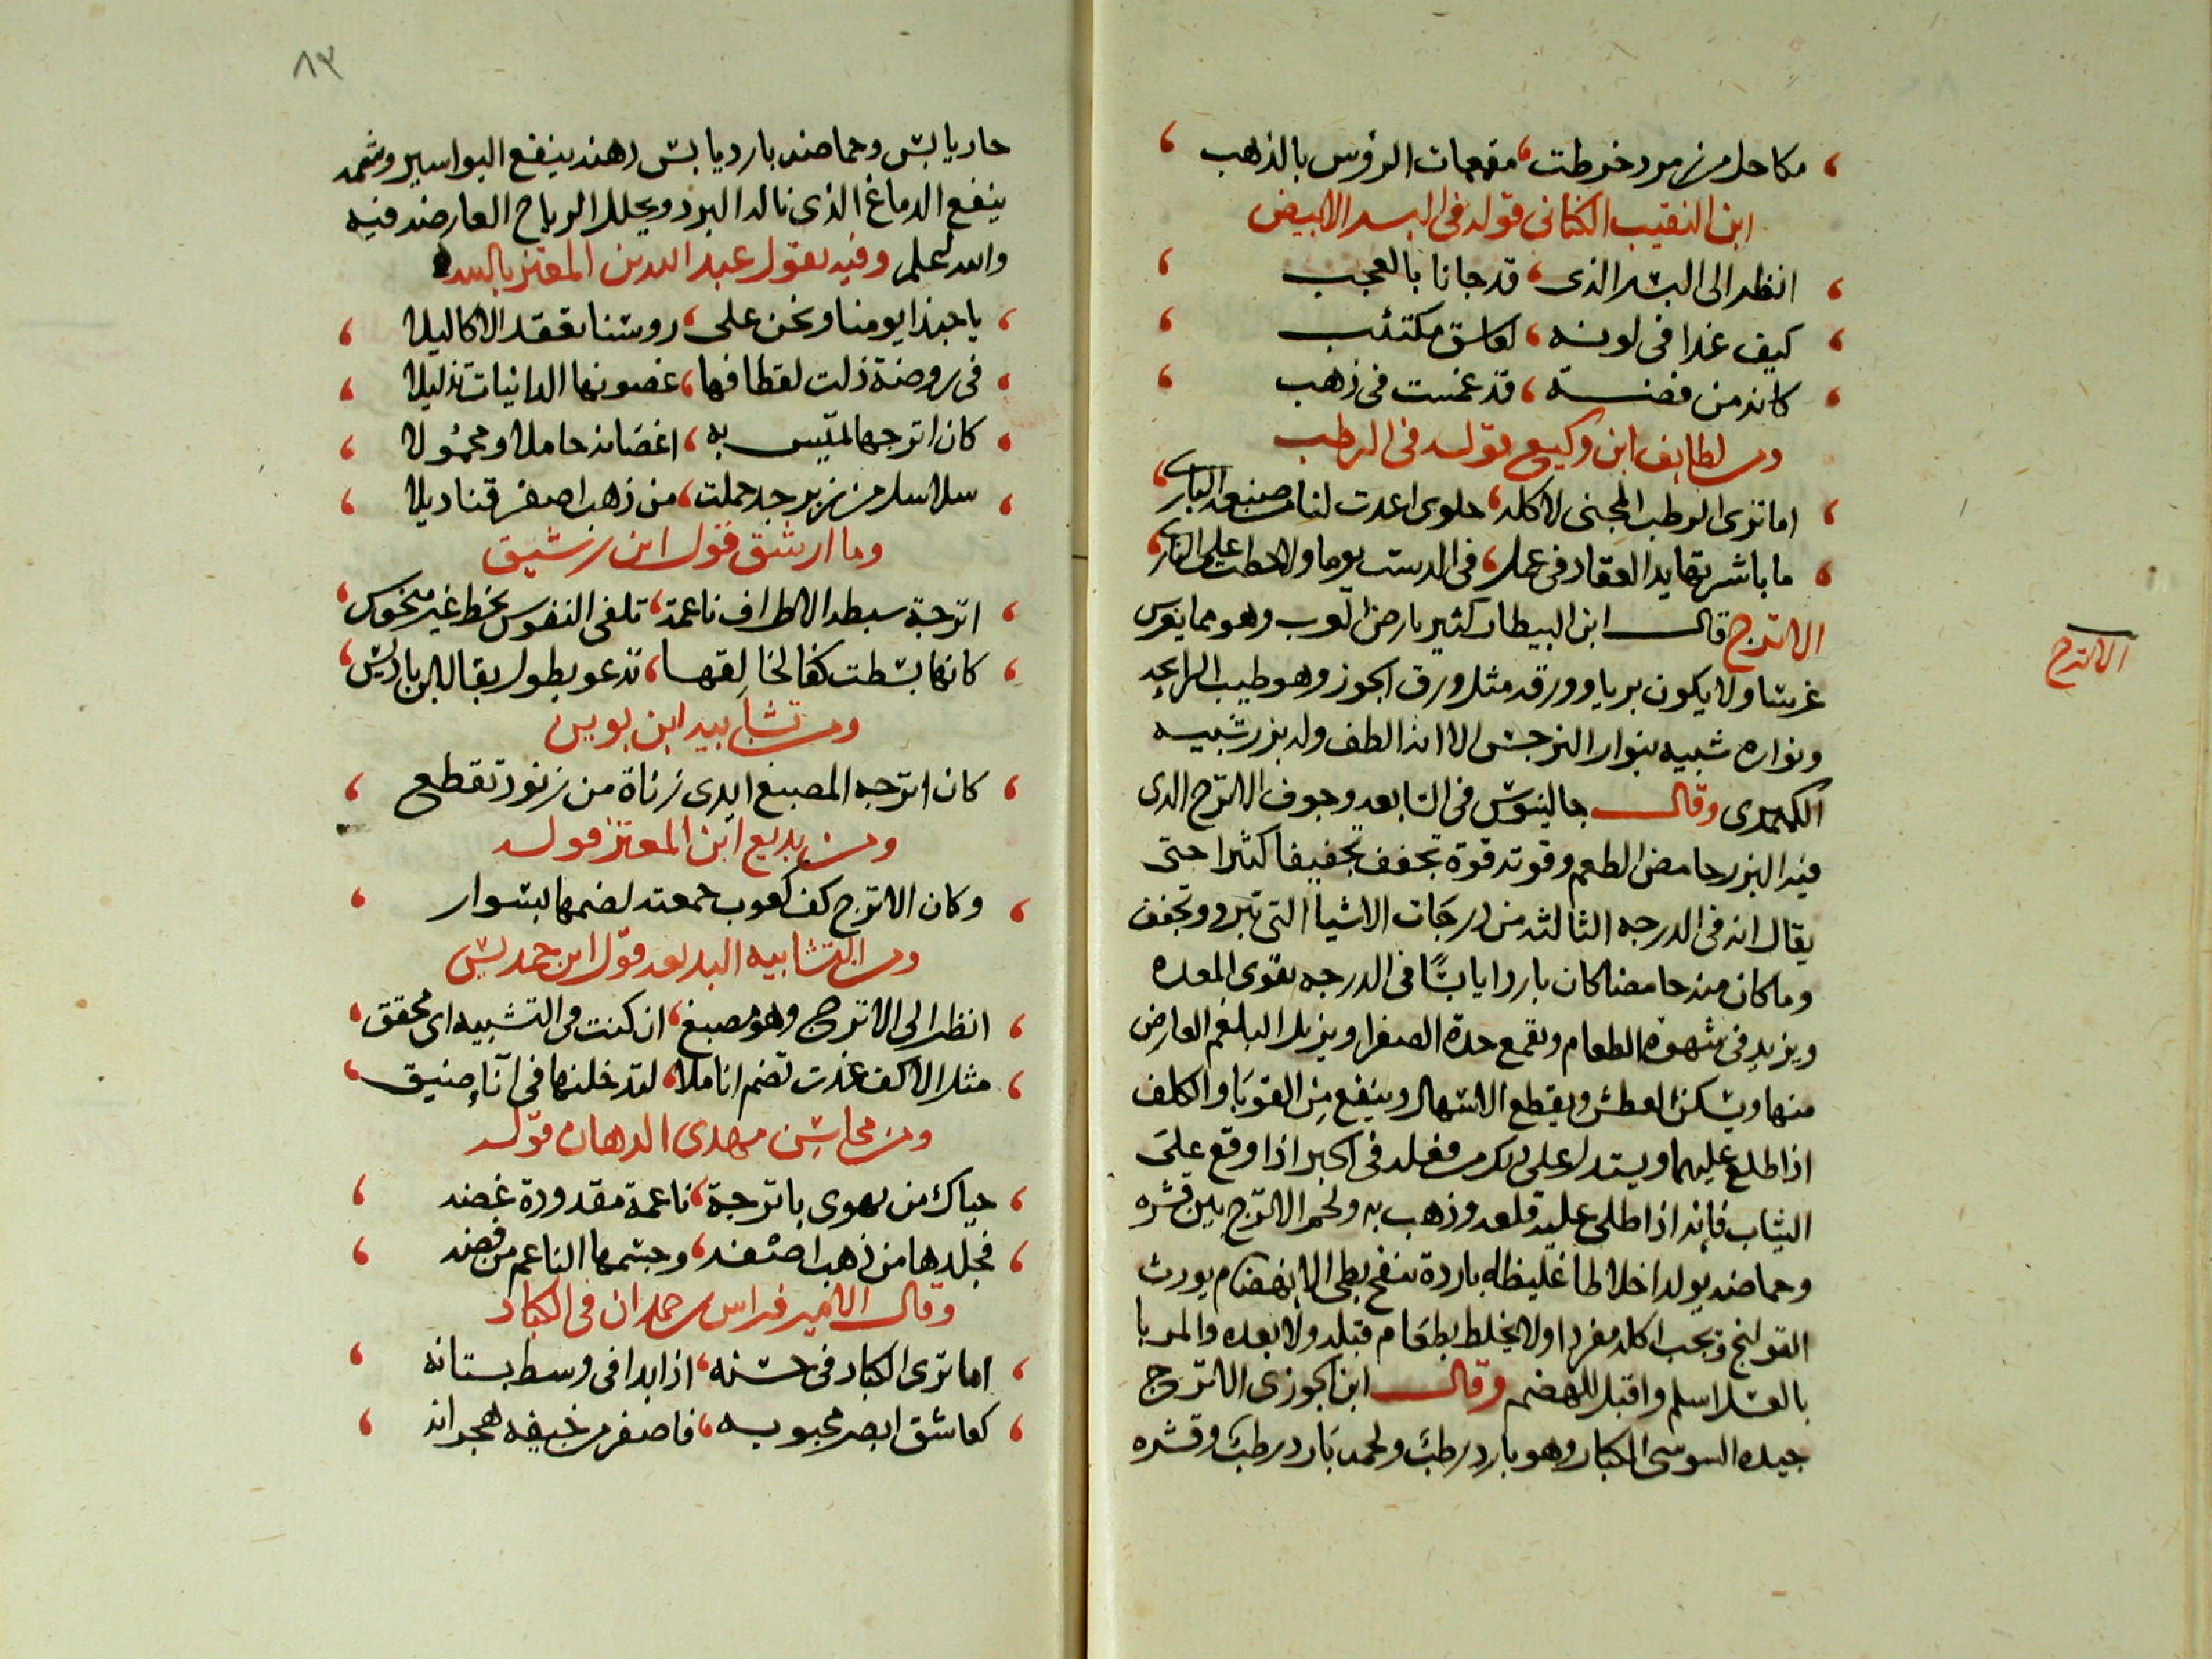 مكاحل من زمرد خرطت، مقمعات الرؤس بالذهب
ابن النقيب الكنانى قوله فى البسر الابيض
انظر الى البسر الذى، قد جانا بالعجب
كيف غدا فى لونه، لعاشق مكتئب
كانه من فضة، قد غمست فى ذهب
ومن لطايف ابن وكيع قوله فى الرطب
اما ترى الرطب المجنى لاكله، حلوى اعدت لنا من صنعه البارى
ما باشرتها يد العقاد فى عمل، فى الدست يوما ولا حطت على النار
الاترج
الاترج قال ابن البيطار كثير بارض العرب وهو مما يغرس
غرسا ولا يكون بريا وورقه مثل ورق الجوز وهو طيب الرايحه
ونواره شبيه بنوار النرجس الا انه الطف وله بزر شبيه
الكمثرى وقال جالينوس فى السابعه وجوف الاترج الذى
فيه البزر حامض الطعم وقوته قوة تجفف تجفيفا كثيرا حتى
يقال انه فى الدرجه الثالثه من درجات الاشيا التى تبرد وتجفف
وما كان منه حامضا كان باردا يابسًا فى الدرجه يقوى المعده
ويزيد فى شهوة الطعام ويقمع حدة الصفرا ويزيل البلغم العارض
منها ويسكن العطش ويقطع الاسهال وينفع من القوبا والكلف
اذا طلع عليهما ويستدل على ذلك من فعله فى الحبر اذا وقع على
الثياب فإنه اذا طلى عليه قلعه وذهب به ولحم الاترج بين قشره
وحماضه يولد اخلاطا غليظه باردة ينفخ بطى الانهضام يورث
القولنج ويجب اكله مفردا ولا يخلط بطعام قبله ولا بعده والمربا
بالعسل اسلم واقبل للهضم وقال ابن الجوزى الاترج
جيده السوسى الكبار وهو بارد رطب ولحمه بارد رطب وقشره
٨٣
حار يابس وحماضه بارد يابس دهنه ينفع البواسير وشمه
ينفع الدماغ الذى ناله البرد ويحلل الرياح العارضه فيه
والله اعلم وفيه يقول عبد الله بن المعتز بالله
يا حبذا يومنا ونحن على، روسنا نعقد الاكاليلا
فى روضة ذلت لقطافها، غصونها الدانيات تذليلا
كان اترجها لميس به، اغصانه حاملا ومحمولا
سلاسل من زبرجد حملت، من ذهب اصفر قناديلا
وما ارشق قول ابن رشيق
اترجة سبطه الاطراف ناعمة، تلقى النفوس بخط غير منحوس
كانما بسطت كفا لخالقها، تدعو بطول بقا لابن باديس
ومن تشابيه ابن بويس
كان اترجه المصبغ ايدى زناة من زنود تقطع
ومن بديع ابن المعتز قوله
وكان الاترج كف كعوب جمعته لضمها بسوار
ومن التشابيه البديعه قول ابن حمديس
انظر الى الاترج وهو مصبغ، ان كنت فى التشبيه اى محقق
مثل الاكف غدت تضم اناملا، لتدخلنها فى آناء ضيق
ومن محاسن مهدى الدهان قوله
حياك من يهوى باترجة، ناعمة مقدودة غضه
فجلدها من ذهب اصفه، وجسمها الناعم من فضه
وقال الامير فراس بن حمدان فى الكباد
اما ترى الكباد فى حسنه، اذا بدا فى وسط بستانه
كعاشق ابصر محبوبه، فاصفر من خيفه هجرانه